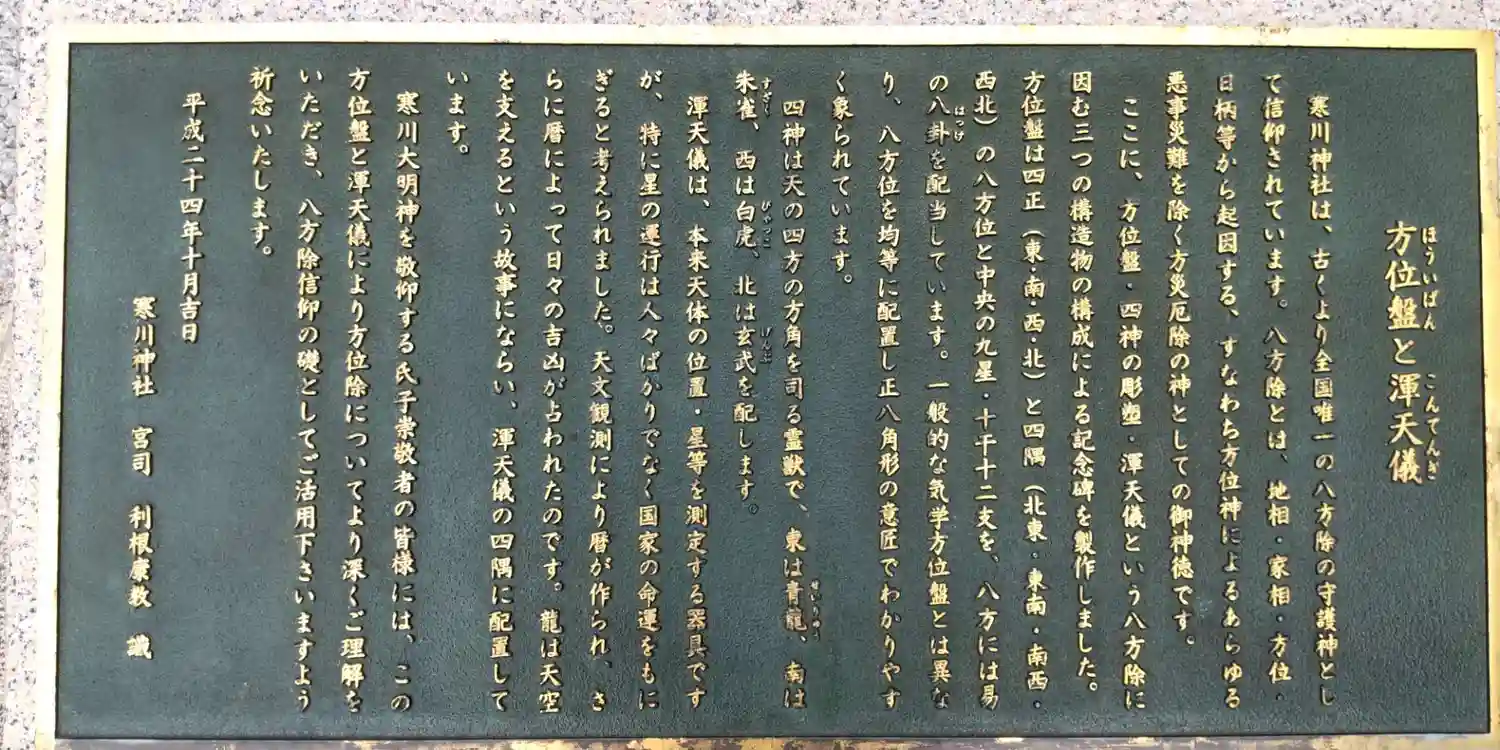 方位盤と渾天儀
ほういばん こんてんぎ
寒川神社は、古くより全国唯一の八方除の守護神とし
て信仰されています。八方除とは、地相・家相・方位・
日柄等から起因する、すなわち方位神によるあらゆる
悪事災難を除く方災厄除の神としての御神徳です。
ここに、方位盤・四神の彫塑・渾天儀という八方除に
因む三つの構造物の構成による記念碑を製作しました。
方位盤は四正（東・南・西・北）と四隅（北東・東南・南西・
西北）の八方位と中央の九星・十干十二支を、八方には易
の八卦を配当しています。一般的な気学方位盤とは異な
はっけ
り、八方位を均等に配置し正八角形の意匠でわかりやす
く象られています。
四神は天の四方の方角を司る霊獣で、東は青龍、南は
せいりゅう
朱雀、西は白虎、北は玄武を配します。
すざく びゃっこ げんぶ
渾天儀は、本来天体の位置・星等を測定する器具です
が、特に星の運行は人々ばかりでなく国家の命運をもに
ぎると考えられました。天文観測により暦が作られ、さ
らに暦によって日々の吉凶が占われたのです。龍は天空
を支えるという故事にならい、渾天儀の四隅に配置して
います。
寒川大明神を敬仰する氏子崇敬者の皆様には、この
方位盤と渾天儀により方位除についてより深くご理解を
いただき、八方除信仰の礎としてご活用下さいますよう
祈念いたします。
平成二十四年十月吉日
寒川神社 宮司 利根康教 識